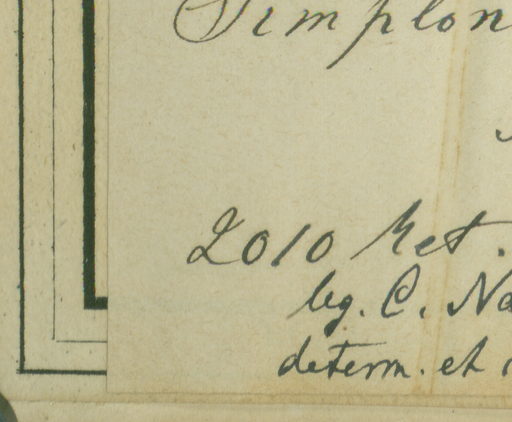 Simplon
2010 Met.
leg. C. Na
determ. et